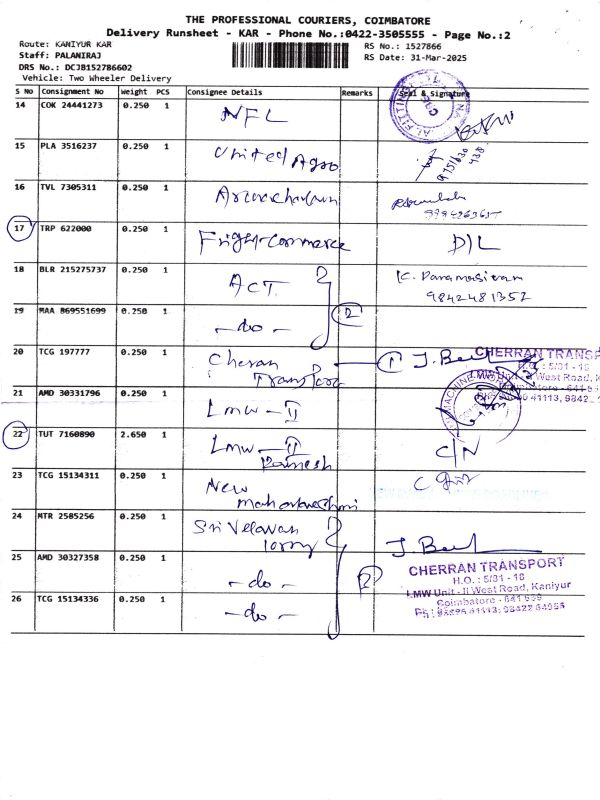 THE PROFESSIONAL COURIERS, COIMBATORE
Delivery Runsheet - KAR - Phone No.:0422-3505555 - Page No.:2
Route: KANIYUR KAR
RS No.: 1527866
Staff: PALANIRAJ
RS Date: 31-Mar-2025
DRS No.: DCJB152786602
Vehicle: Two Wheeler Delivery
S No Consignment No Weight PCS Consignee Details Remarks Seal & Signature
14 COK 24441273 0.250 1 NFL
15 PLA 3516237 0.250 1 United Agro
16 TVL 7305311 0.250 1
17 TRP 622000 0.250 1 D/L
18 BLR 215275737 0.250 1 ACT K. Paramasivam
9842481352
19 MAA 869551699 0.250 1 -do- 2
20 TCG 197777 0.250 1 Cheran 1 CHERRAN TRANSP
Transport H.O. : 5/81 - 16
21 AMD 30331796 0.250 1 LMW-II
22 TUT 7160890 2.650 1 LMW-II C/N
Ramesh
23 TCG 15134311 0.250 1 New
24 MTR 2585256 0.250 1 Sri Velavan
lorry
25 AMD 30327358 0.250 1 -do- 2
CHERRAN TRANSPORT
H.O. : 5/81 - 16
LMW Unit - II West Road, Kaniyur
26 TCG 15134336 0.250 1 -do- Coimbatore - 641 659